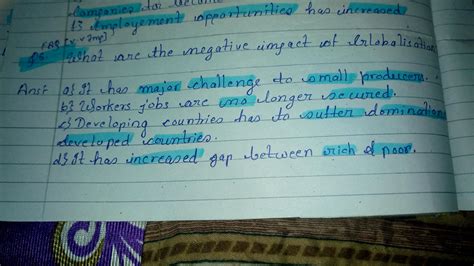 Companies to
f) Employement opportunities has increased
FAQ [v.v Imp]
Q5. What are the negative impact of Globalisation
Ans: a) It has major challenge to small producers.
b) Workers jobs are no longer secured.
c) Developing countries has to suffer domination
developed countries.
d) It has increased gap between rich & poor.